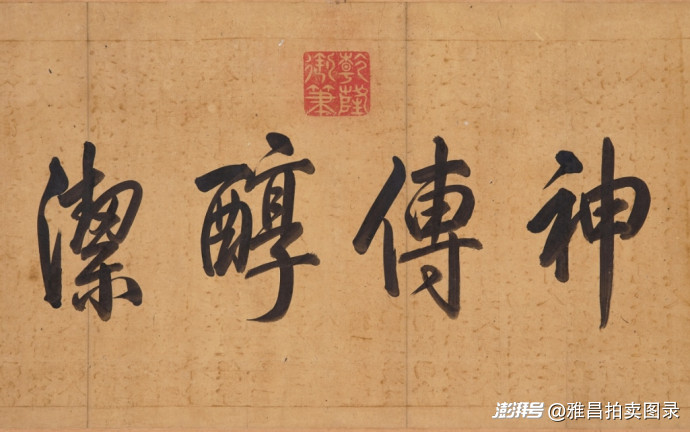 神傳醇潔
乾隆御筆
澎湃号 @雅昌拍卖图录